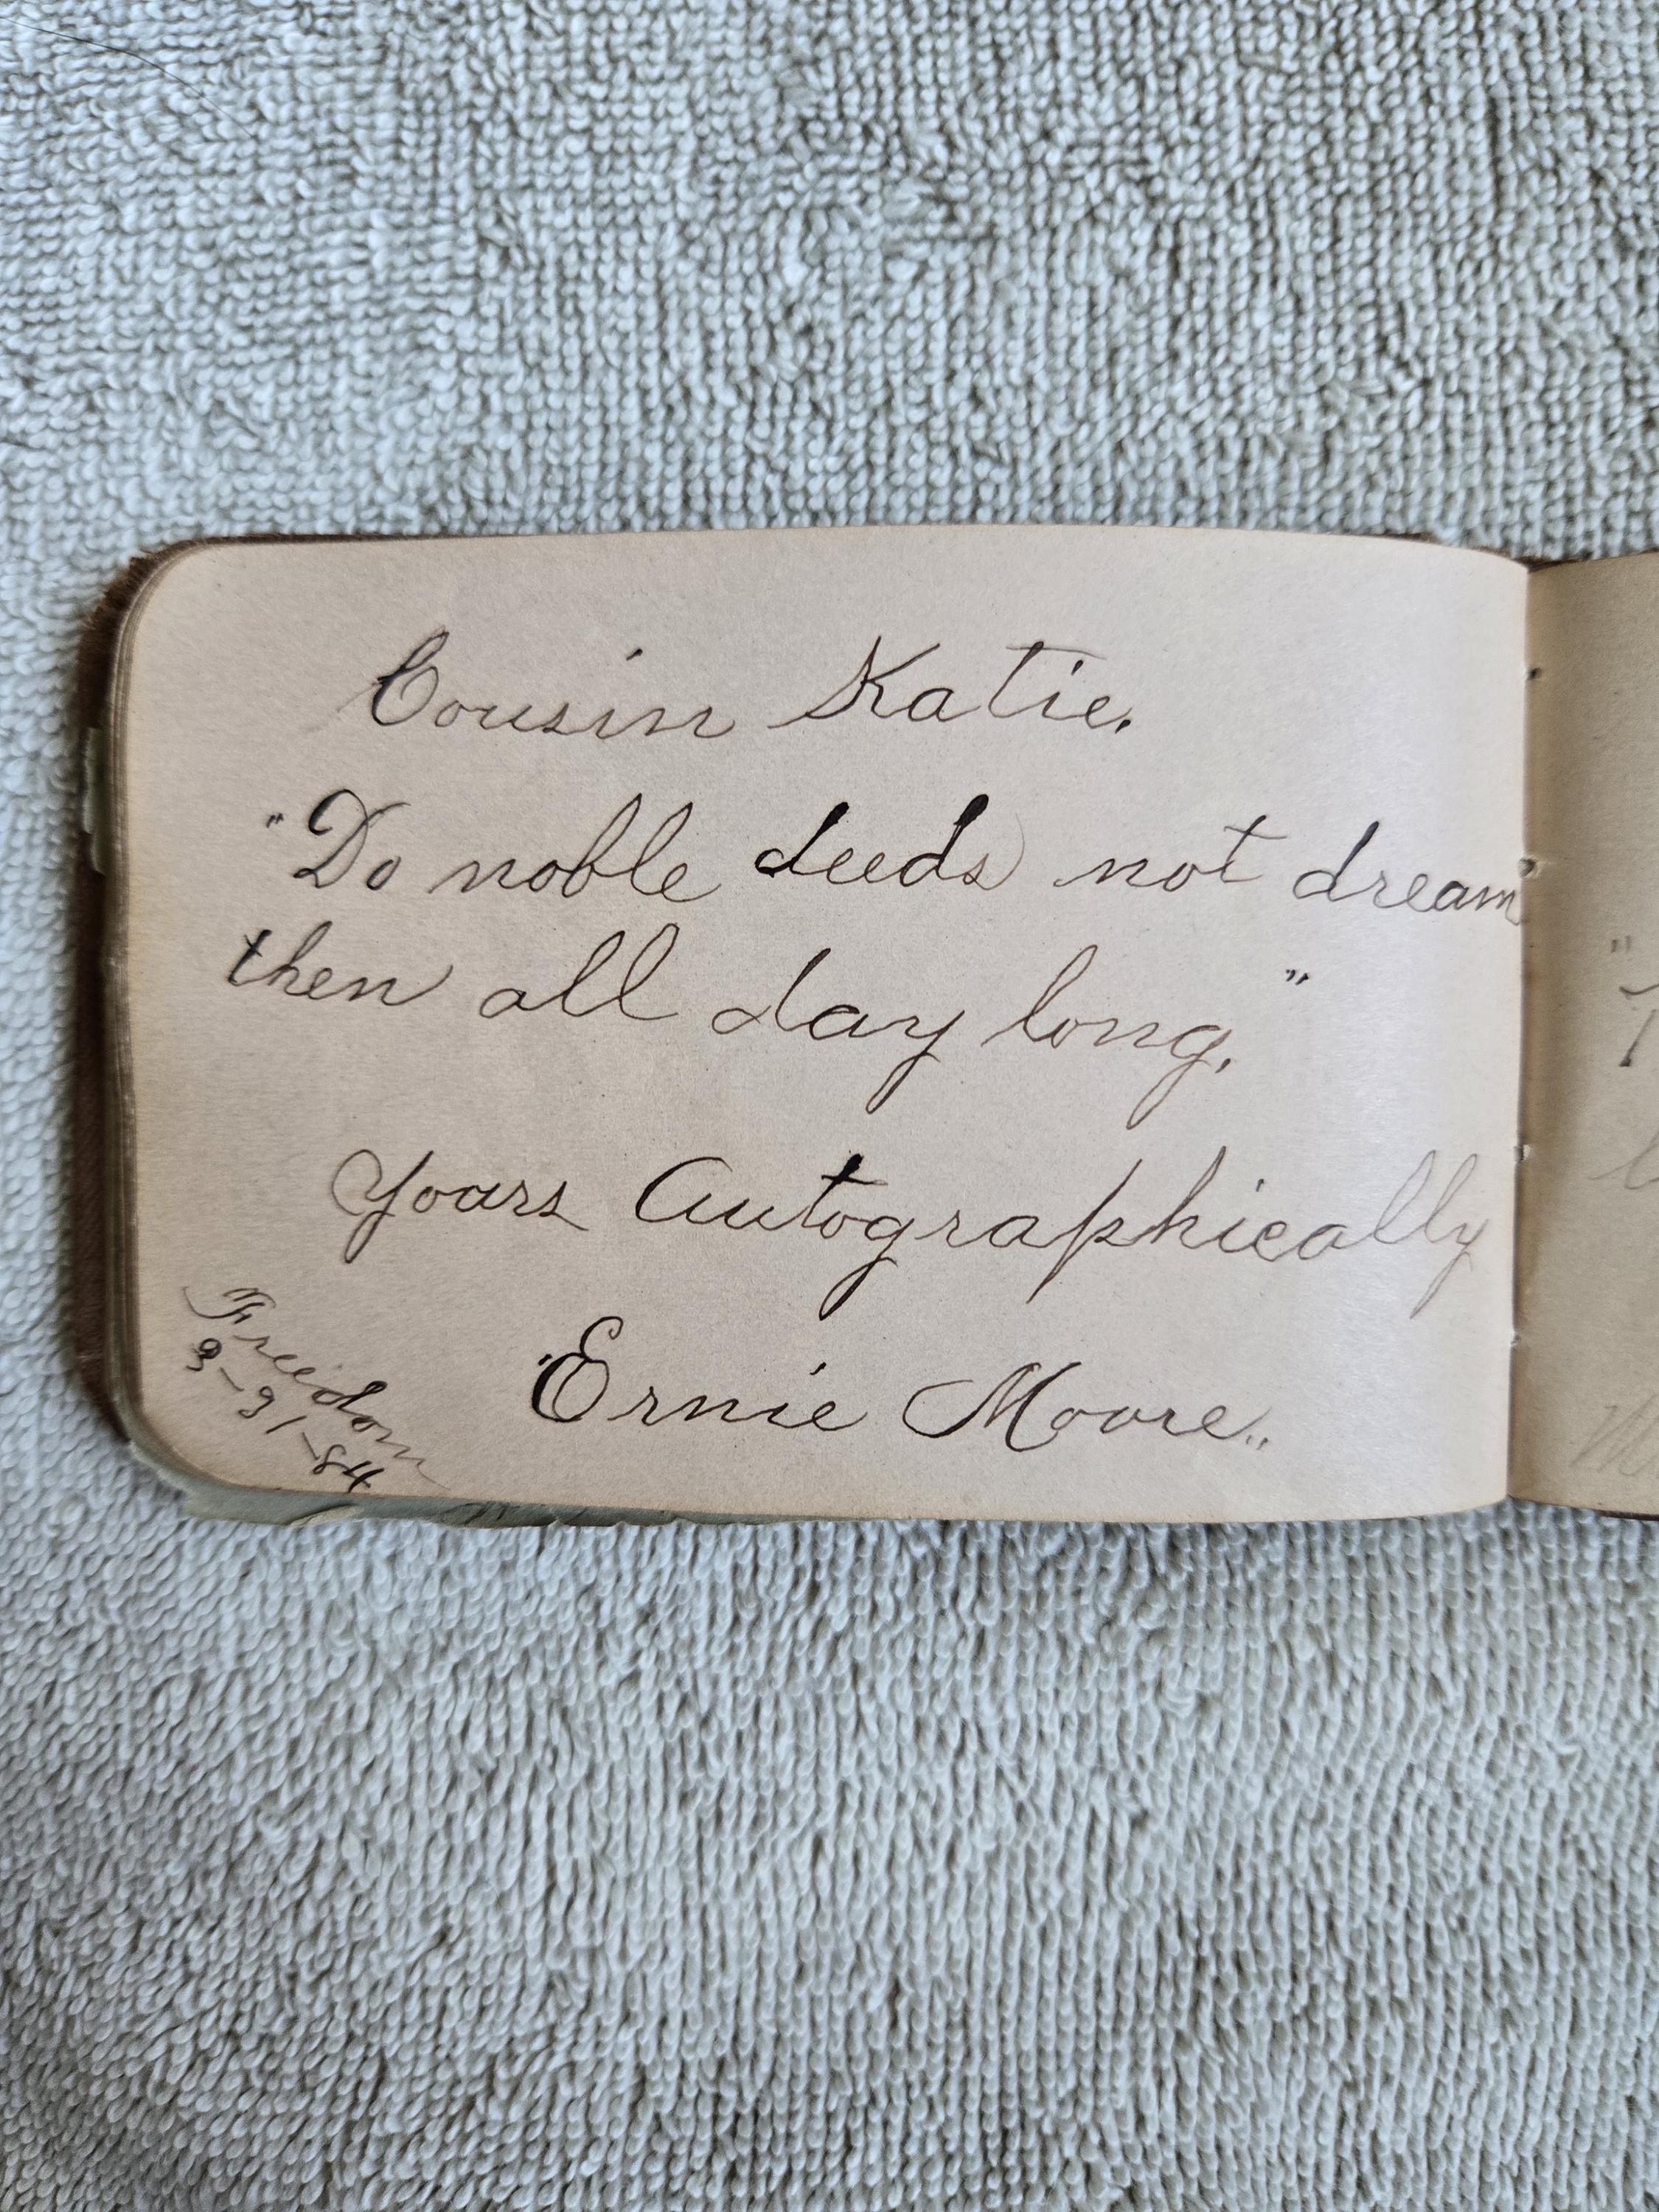 Cousin Katie.
"Do noble deeds not dream
then all day long."
Yours Autographically
Ernie Moore..
Freedom
3-31-84